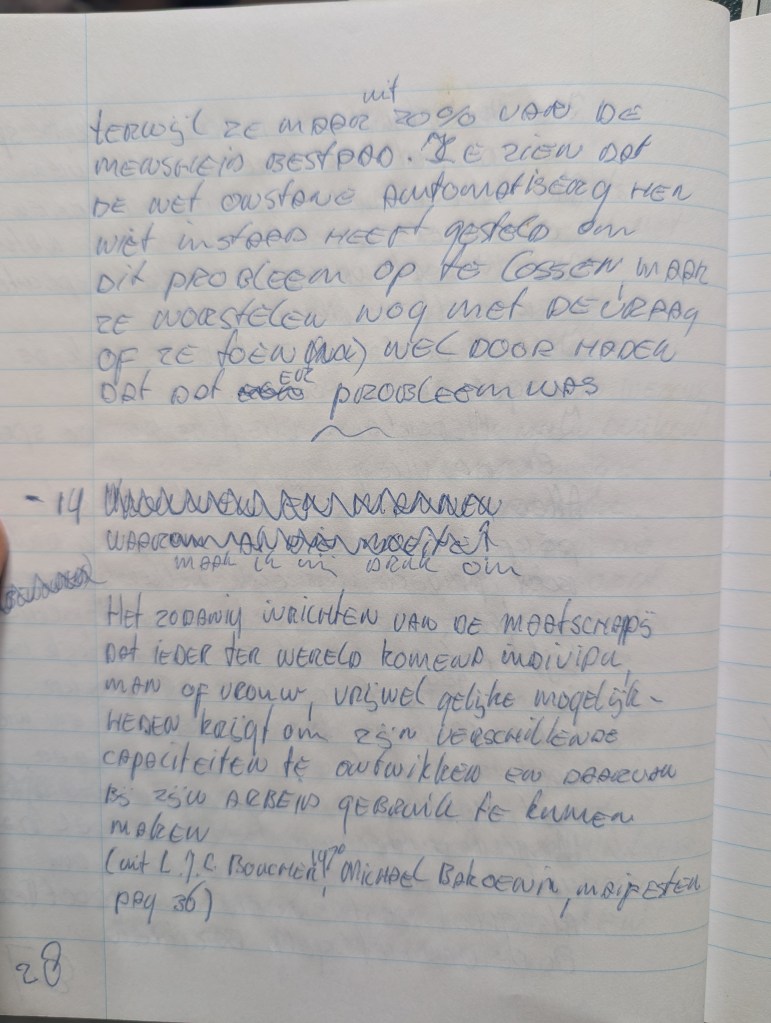 uit
terwijl ze maar 20% van de
mensheid bestaad. Ze zien dat
de net onstane automatisering hen
niet instaad heeft gesteld om
dit probleem op te lossen, maar
ze worstelen nog met de vraag
of ze toen wel door haden
dat dat een probleem was
- 14
waarom
maak ik mij druk om
Het zodanig inrichten van de maatschappij
dat ieder ter wereld komend individu,
man of vrouw, vrijwel gelijke mogelijk-
heden krijgt om zijn verschillende
capaciteiten te ontwikken en daarvan
bij zijn arbeid gebruik te kunnen
maken
(uit L.J.C. Boucher, 1970 Michael Bakoenin, manifesten
pag 36)
28